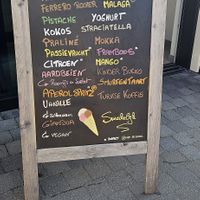 FERRERO ROCHER MALAGA
PISTACHE YOGHURT
KOKOS STRACIATELLA
PRALINÉ MOKKA
PASSIEVRUCHT FRAMBOOS
CITROEN MANGO
AARDBEIEN KINDER BUENO
SMURFENTAART
APEROL SPRITZ TURKSE KOFFIE
VANILLE
VEGAN